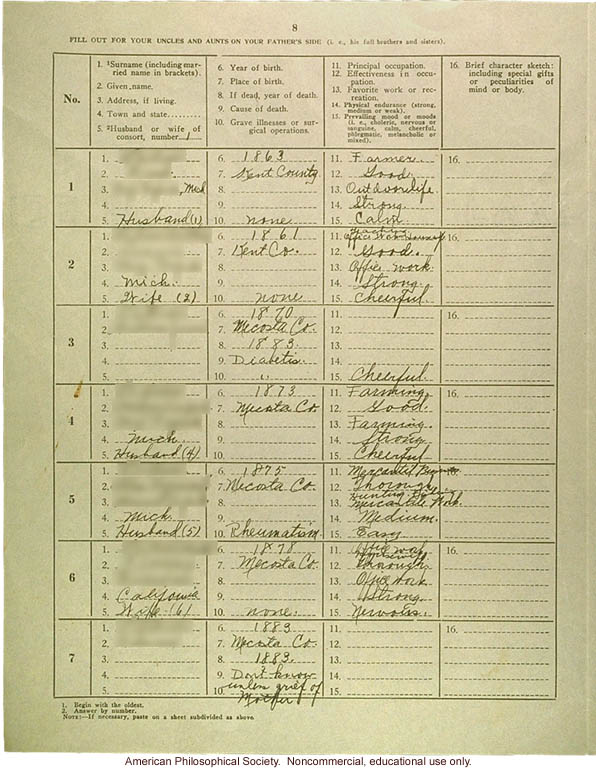 8
FILL OUT FOR YOUR UNCLES AND AUNTS ON YOUR FATHER'S SIDE (i. e., his full brothers and sisters).
No.
1. ¹Surname (including married name in brackets).
2. Given name.
3. Address, if living.
4. Town and state
5. ²Husband or wife of consort, number 1
6. Year of birth.
7. Place of birth.
8. If dead, year of death.
9. Cause of death.
10. Grave illnesses or surgical operations.
11. Principal occupation.
12. Effectiveness in occupation.
13. Favorite work or recreation.
14. Physical endurance (strong, medium or weak).
15. Prevailing mood or moods (i. e., choleric, nervous or sanguine, calm, cheerful, phlegmatic, melancholic or mixed).
16. Brief character sketch: including special gifts or peculiarities of mind or body.
1
1.
2.
3. , Mich
4.
5. Husband (1)
6. 1863
7. Kent County
8.
9.
10. none
11. Farmer
12. Good
13. Outdoor life
14. Strong
15. Calm
16.
2
1.
2.
3.
4. Mich.
5. Wife (2)
6. 1861
7. Kent Co.
8.
9.
10. none
11. Office Work
12. Good.
13. Office work.
14. Strong
15. Cheerful
16.
3
1.
2.
3.
4.
5.
6. 1870
7. Mecosta Co.
8. 1883.
9. Diabetis.
10. "
11.
12.
13.
14.
15. Cheerful.
16.
4
1.
2.
3.
4. Mich
5. Husband (4)
6. 1873
7. Mecosta Co
8.
9.
10.
11. Farming
12. Good.
13. Farming.
14. Strong
15. Cheerful
16.
5
1.
2.
3.
4. Mich
5. Husband (5)
6. 1875
7. Mecosta Co.
8.
9.
10. Rheumatism
11. Mercantil
12. Thorough
13. Hunting
Mercantile Work.
14. Medium.
15. Easy
16.
6
1.
2.
3.
4. California
5. Wife (6)
6. 1878
7. Mecosta Co.
8.
9.
10. none.
11. Office work
Housewife
12. Thorough
13. Office Work
14. Strong
15. Nervous.
16.
7
1.
2.
3.
4.
5.
6. 1883
7. Mecosta Co.
8. 1883.
9. Don't know
10. unless grief of
Mother
11.
12.
13.
14.
15.
16.
1. Begin with the oldest.
2. Answer by number.
NOTE:—If necessary, paste on a sheet subdivided as above.
American Philosophical Society. Noncommercial, educational use only.